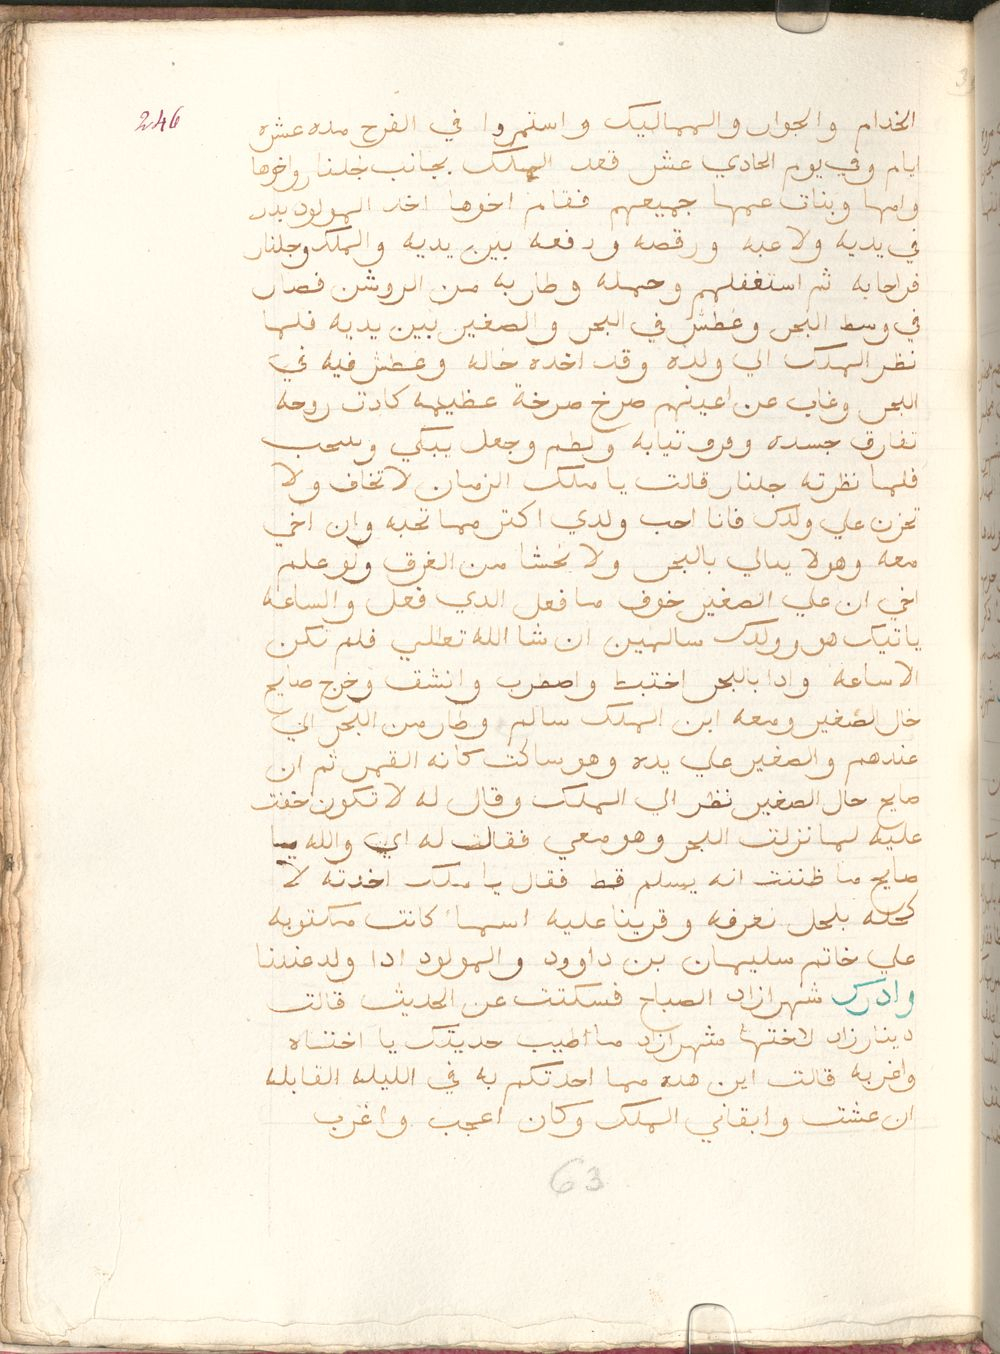 246
الخدام والجوار والمماليك واستمروا في الفرح مده عشره
ايام وفي يوم الحادي عشر قعد الملك بجانب جلنار واخوها
وامها وبنات عمها جميعهم فقام اخوها اخد المولود بدر
في يديه ولاعبه ورقصه ودفعه بين يديه والملك وجلنار
فراحا به ثم استغفلهم وحمله وطار به من الروشن فصار
في وسط البحر وغطس في البحر والصغير بين يديه فلما
نظر الملك الي ولده وقد اخده خاله وغطس فيه في
البحر وغاب عن اعينهم صرخ صرخة عظيمه كادت روحه
تفارق جسده ومزق تيابه ولطم وجعل يبكي وينتحب
فلما نظرته جلنار قالت يا ملك الزمان لا تخاف ولا
تحزن علي ولدك فانا احب ولدي اكتر مما تحبه وان اخي
معه وهو لا يبالي بالبحر ولا يخشا من الغرق ولو علم
اخي ان علي الصغير خوف ما فعل الدي فعل والساعه
ياتيك هو وولدك سالمين ان شا الله تعالي فلم تكن
الا ساعه وادا بالبحر اختبط واصطرب وانشق وخرج صايح
خال الصغير ومعه ابن الملك سالم وطار من البحر الي
عندهم والصغير علي يده وهو ساكت كانه القمر ثم ان
صايح خال الصغير نظر الي الملك وقال له لا تكون خفت
عليه لما نزلت البحر وهو معي فقالت له اي والله يا
صايح ما ظننت انه يسلم قط فقال يا ملك اخدته لا
كحله بكحل نعرفه وقرينا عليه اسما كانت مكتوبه
علي خاتم سليمان بن داوود والمولود ادا ولد عندنا
وادرك شهرازاد الصباح فسكتت عن الحديث قالت
دينارزاد لاختها شهرازاد ما اطيب حديتك يا اختاه
واغربه قالت اين هده مما احدتكم به في الليله القابله
ان عشت وابقاني الملك وكان اعجب واغرب
63